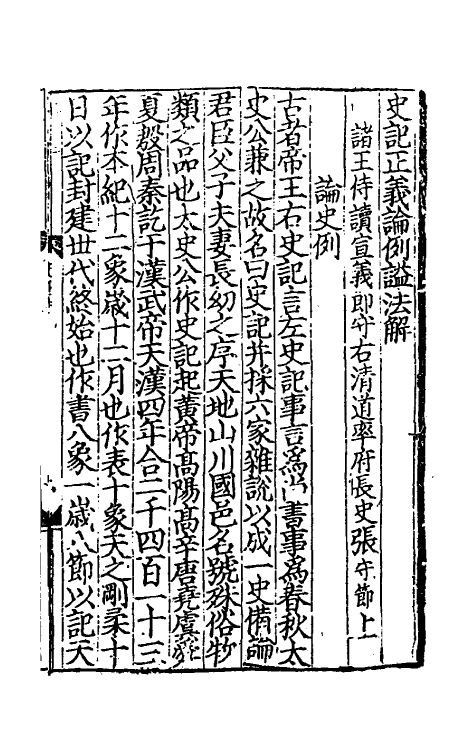 史記正義論例謚法解
諸王侍讀宣義郎守右清道率府長史張守節上
論史例
古者帝王右史記言左史記事言爲尚書事爲春秋太
史公兼之故名曰史記并採六家雜說以成一史備論
君臣父子夫妻長幼之序天地山川國邑名號殊俗物
類之品也太史公作史記起黃帝髙陽髙辛唐堯虞舜
夏殷周秦訖于漢武帝天漢四年合二千四百一十三
年作本紀十二象歲十二月也作表十象天之剛柔十
日以記封建世代終始也作書八象一歲八節以記天